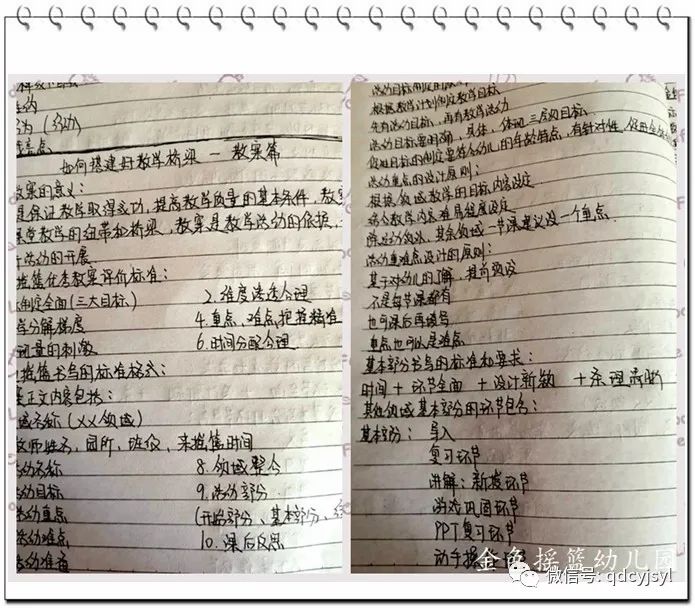 为（多动）
如何搭建好教学桥梁 — 教案篇
教案的意义：
是保证教学取得成功，提高教学质量的基本条件，教案
课堂教学的纽带和桥梁，教案是教学活动的依据，
活动的开展
摇篮优秀教案评价标准：
制定全面（三大目标）
2. 难度 合理
分解梯度
4. 重点、难点把握精准
量的刺激
6. 时间分配合理
摇篮书写的标准格式：
正文内容包括：
域名称（XX领域）
教师姓名、园所、班级、来摇篮时间
活动名称
8. 领域整合
活动目标
9. 活动部分
活动重点
（开始部分、基本部分、
活动难点
10. 课后反思
活动准备
根据教学计划制定教学目标
先有活动目标，再有教学活动
活动目标要明确，具体，体现三层次目标
促进目标的制定要符合幼儿的年龄特点，有针对性，促进全
活动重点的设计原则：
根据领域教学的目标内容设定
结合教学内容难易程度设定
其余领域一节课建议设一个重点
活动重难点设计的原则：
基于对幼儿的了解，提前预设
不是每节课都有
也可课后再填写
重点也可以是难点
基本部分书写的标准和要求：
时间 + 环节全面 + 设计新颖 + 条理清晰
其他领域基本部分的环节包含：
基本部分：导入
复习环节
讲解：新授环节
游戏巩固环节
PPT复习环节
动手操
金色摇篮幼儿园
微信号: qdcyjsyl